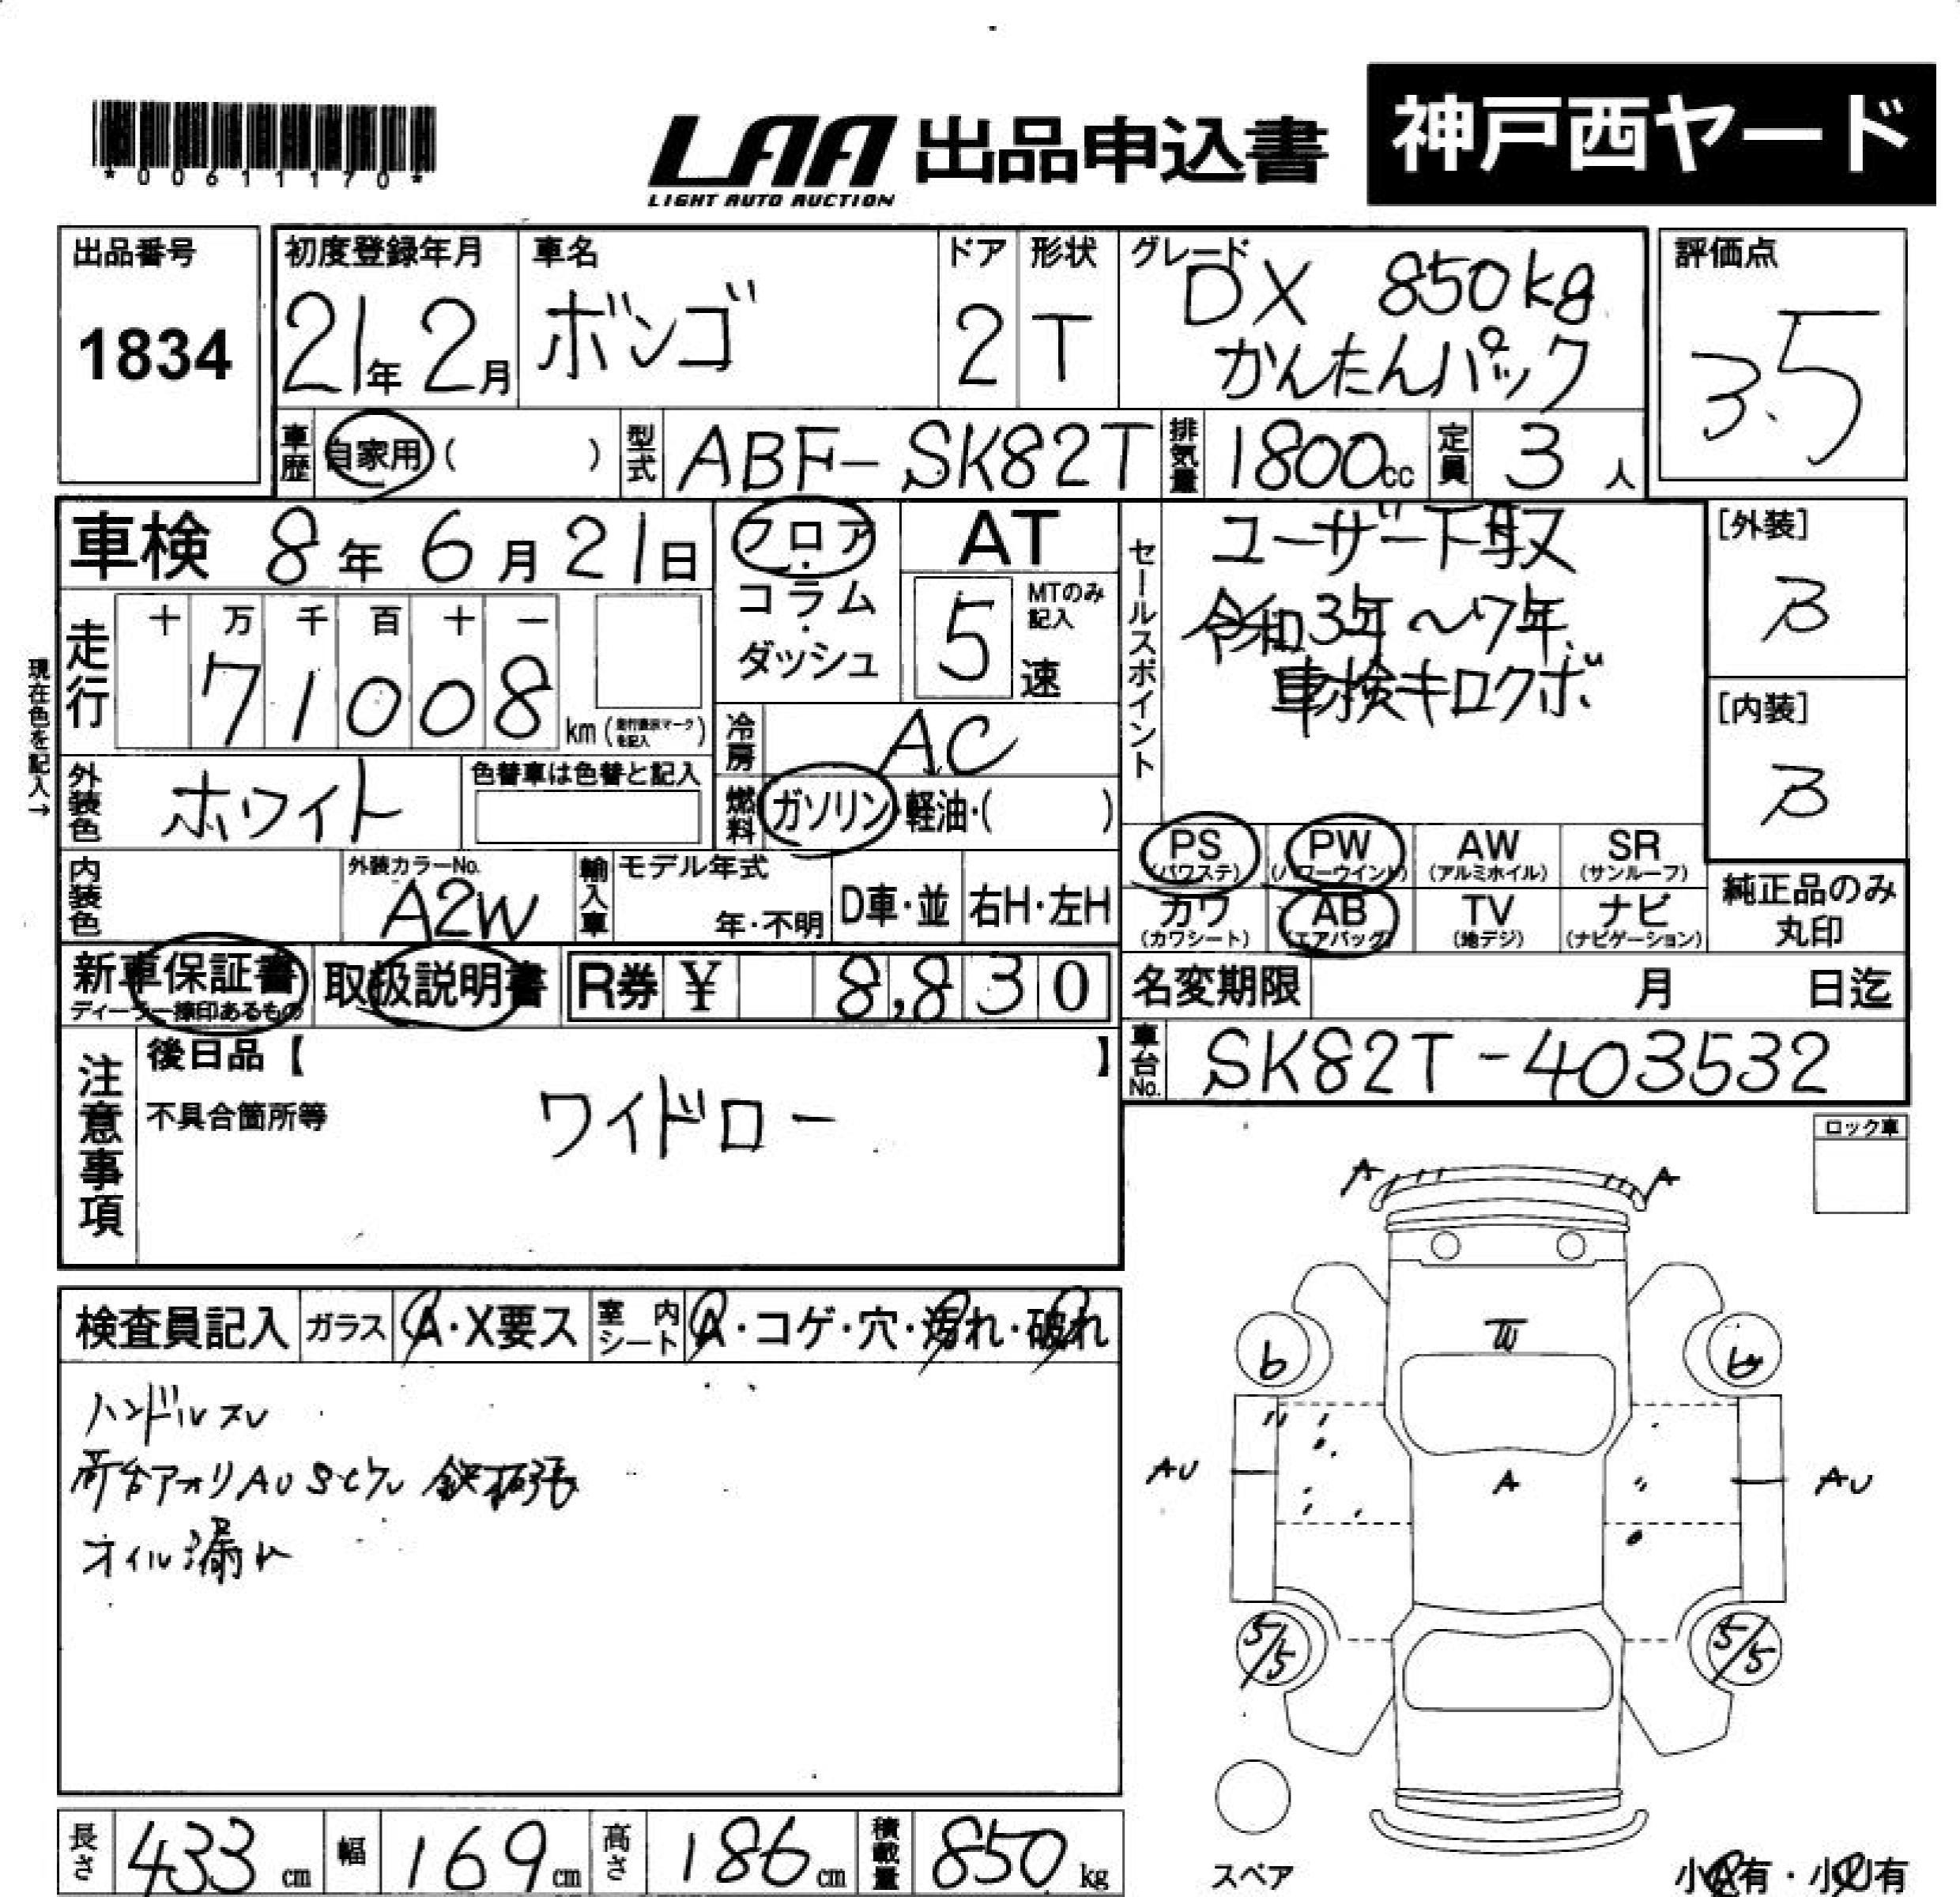 *00611170*
LAA 出品申込書 神戸西ヤード
LIGHT AUTO AUCTION
出品番号
1834
初度登録年月
21年 2月
車名
ボンゴ
ドア
2
形状
T
グレード
DX 850kg
かんたんパック
評価点
3.5
車歴 自家用 ( )
型式 ABF-SK82T
排気量 1800cc
定員 3人
車検 8年6月21日
フロア・
コラム・
ダッシュ
AT
5速
MTのみ
記入
セールスポイント
ユーザー下取
令和3年〜7年.
車検キロクボ.
[外装]
B
[内装]
B
現在色を記入→
走行
十 万 千 百 十 一
7 1 0 0 8
km
を記入
冷房 AC
外装色 ホワイト
色替車は色替と記入
燃料 ガソリン・軽油・( )
PS
(パワステ)
PW
(パワーウインド)
AW
(アルミホイル)
SR
(サンルーフ)
カワ
(カワシート)
AB
(エアバッグ)
TV
(地デジ)
ナビ
(ナビゲーション)
純正品のみ
丸印
内装色
外装カラーNo.
A2W
輸入車
モデル年式
年・不明
D車・並
右H・左H
新車保証書
ディーラー捺印あるもの
取扱説明書
R券 ¥ 8,830
名変期限 月 日迄
車台No. SK82T-403532
注意事項
後日品【 】
不具合箇所等
ワイドロー
ロック車
A A
検査員記入 ガラス A・X要ス 室内シート A・コゲ・穴・汚れ・破れ
ハンドルスレ
荷台アオリAUSヒケレ 鉄板張
オイル漏れ
b b
AU A AU
5/5 5/5
スペア
長さ 433cm 幅 169cm 高さ 186cm 積載量 850kg
小A有・小U有